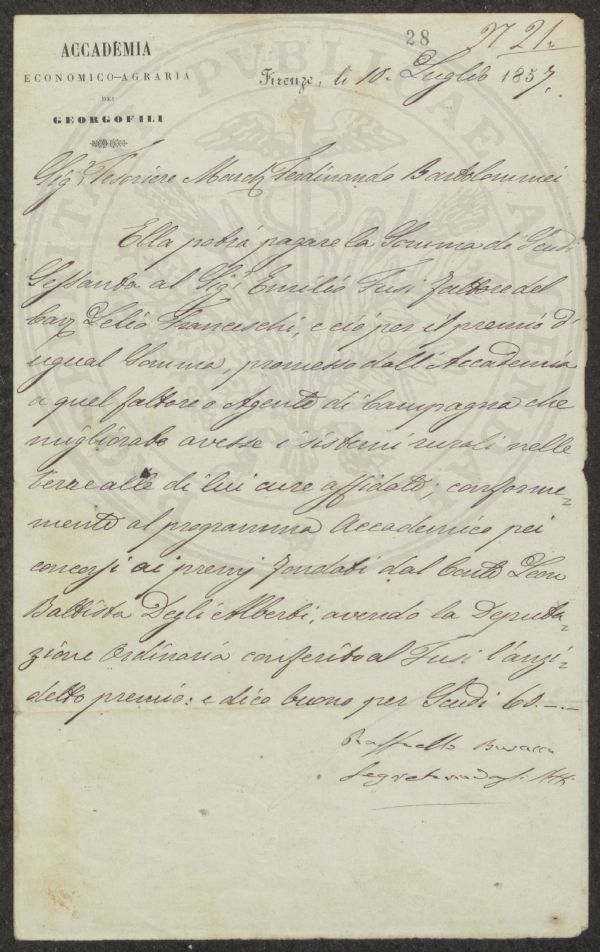 ACCADEMIA
ECONOMICO-AGRARIA
DEI
GEORGOFILI
28
N 21
Firenze, li 10. Luglio 1857.
Sigr. Tesoriere March. Ferdinando Bartolommei
Ella potrà pagare la Somma di Scudi
Sessanta al Sigr. Emilio Fusi fattore del
Cav. Lelio Franceschi, e ciò per il premio d'
ugual Somma, promesso dall'Accademia
a quel fattore o Agente di Campagna che
migliorato avesse i sistemi rurali nelle
terre alle di lui cure affidate; conforme-
mente al programma Accademico pei
concorsi ai premj fondati dal Conte Leon
Battista Degli Alberti, avendo la Deputa-
zione Ordinaria conferito al Fusi l'anzi-
detto premio: e dico buono per Scudi 60.—.—
Raffaello Busacca
Segretario degli Atti